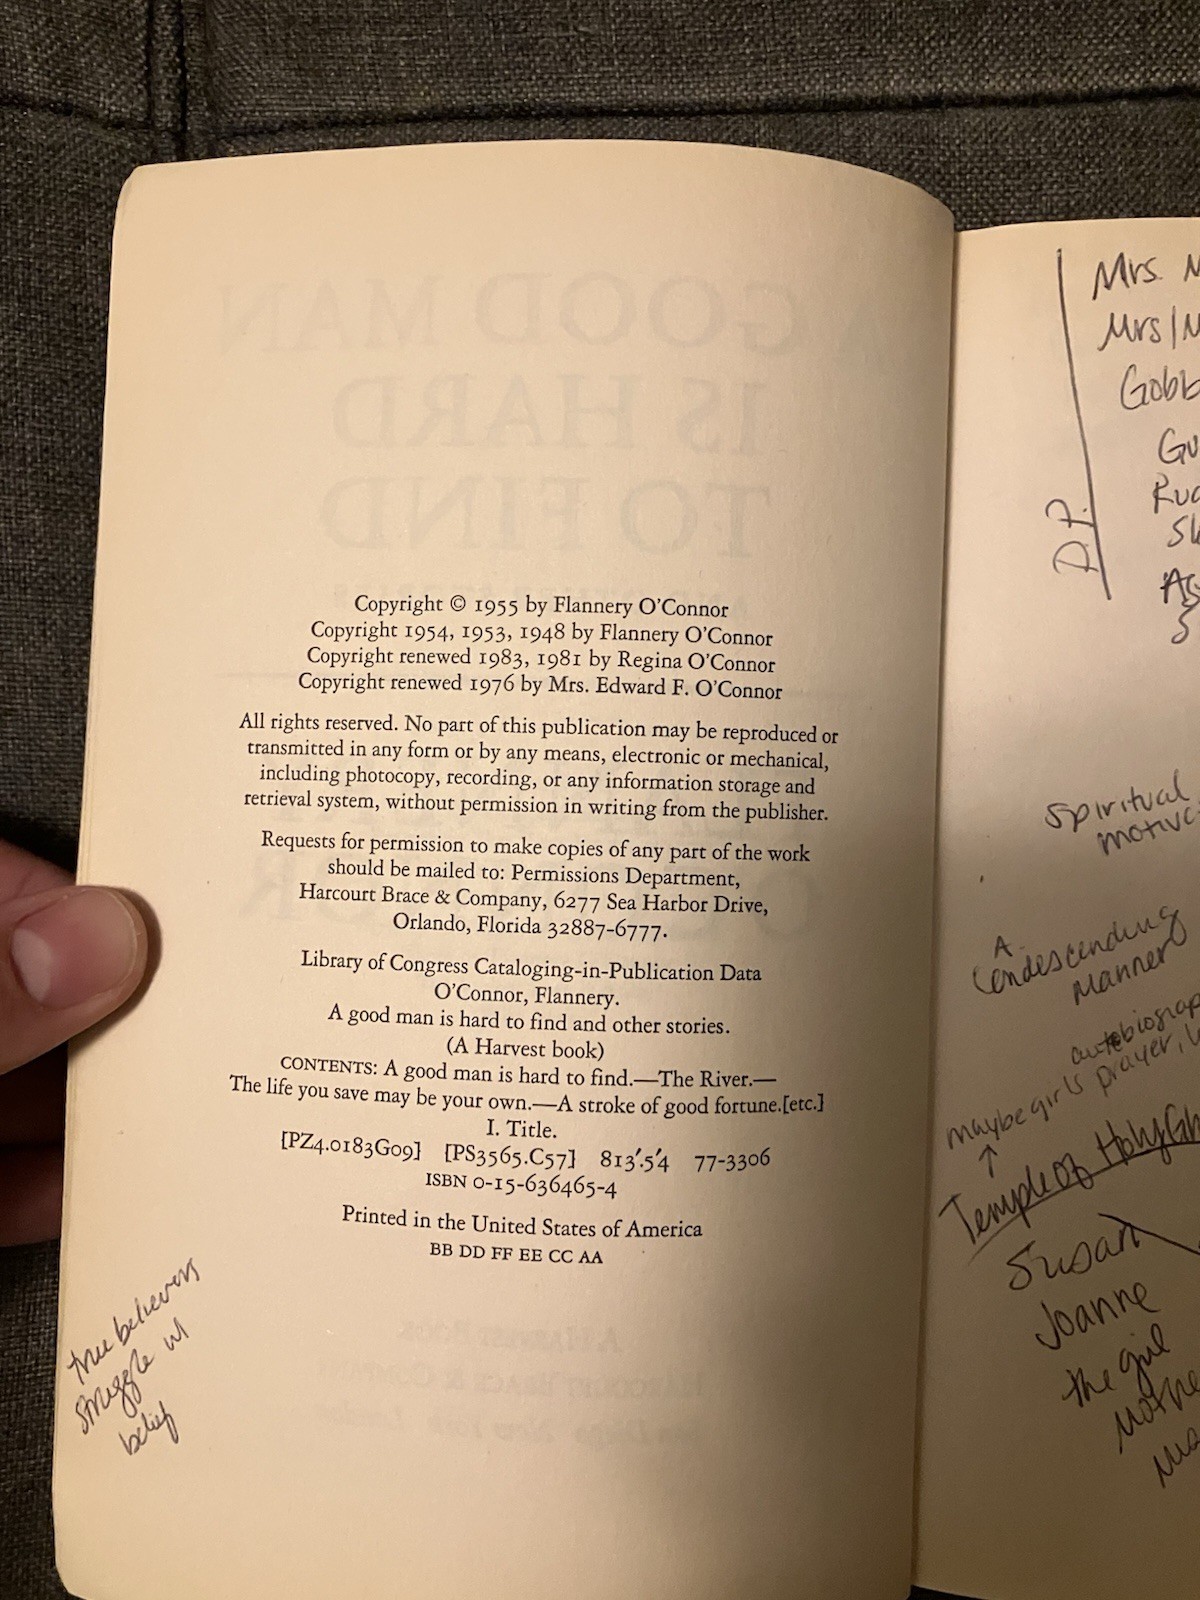 Copyright © 1955 by Flannery O'Connor
Copyright 1954, 1953, 1948 by Flannery O'Connor
Copyright renewed 1983, 1981 by Regina O'Connor
Copyright renewed 1976 by Mrs. Edward F. O'Connor
All rights reserved. No part of this publication may be reproduced or
transmitted in any form or by any means, electronic or mechanical,
including photocopy, recording, or any information storage and
retrieval system, without permission in writing from the publisher.
Requests for permission to make copies of any part of the work
should be mailed to: Permissions Department,
Harcourt Brace & Company, 6277 Sea Harbor Drive,
Orlando, Florida 32887-6777.
Library of Congress Cataloging-in-Publication Data
O'Connor, Flannery.
A good man is hard to find and other stories.
(A Harvest book)
CONTENTS: A good man is hard to find.—The River.—
The life you save may be your own.—A stroke of good fortune.[etc.]
I. Title.
[PZ4.0183G09] [PS3565.C57] 813'.5'4 77-3306
ISBN 0-15-636465-4
Printed in the United States of America
BB DD FF EE CC AA
true believers
struggle w/
belief
D.P.
Mrs.
Mrs/M
Gobb
Gu
Spiritual
motiva
A
Condescending
Manner
autobiograp
maybe girls prayer,
Temple of Holy Gh
Susan
Joanne
the girl